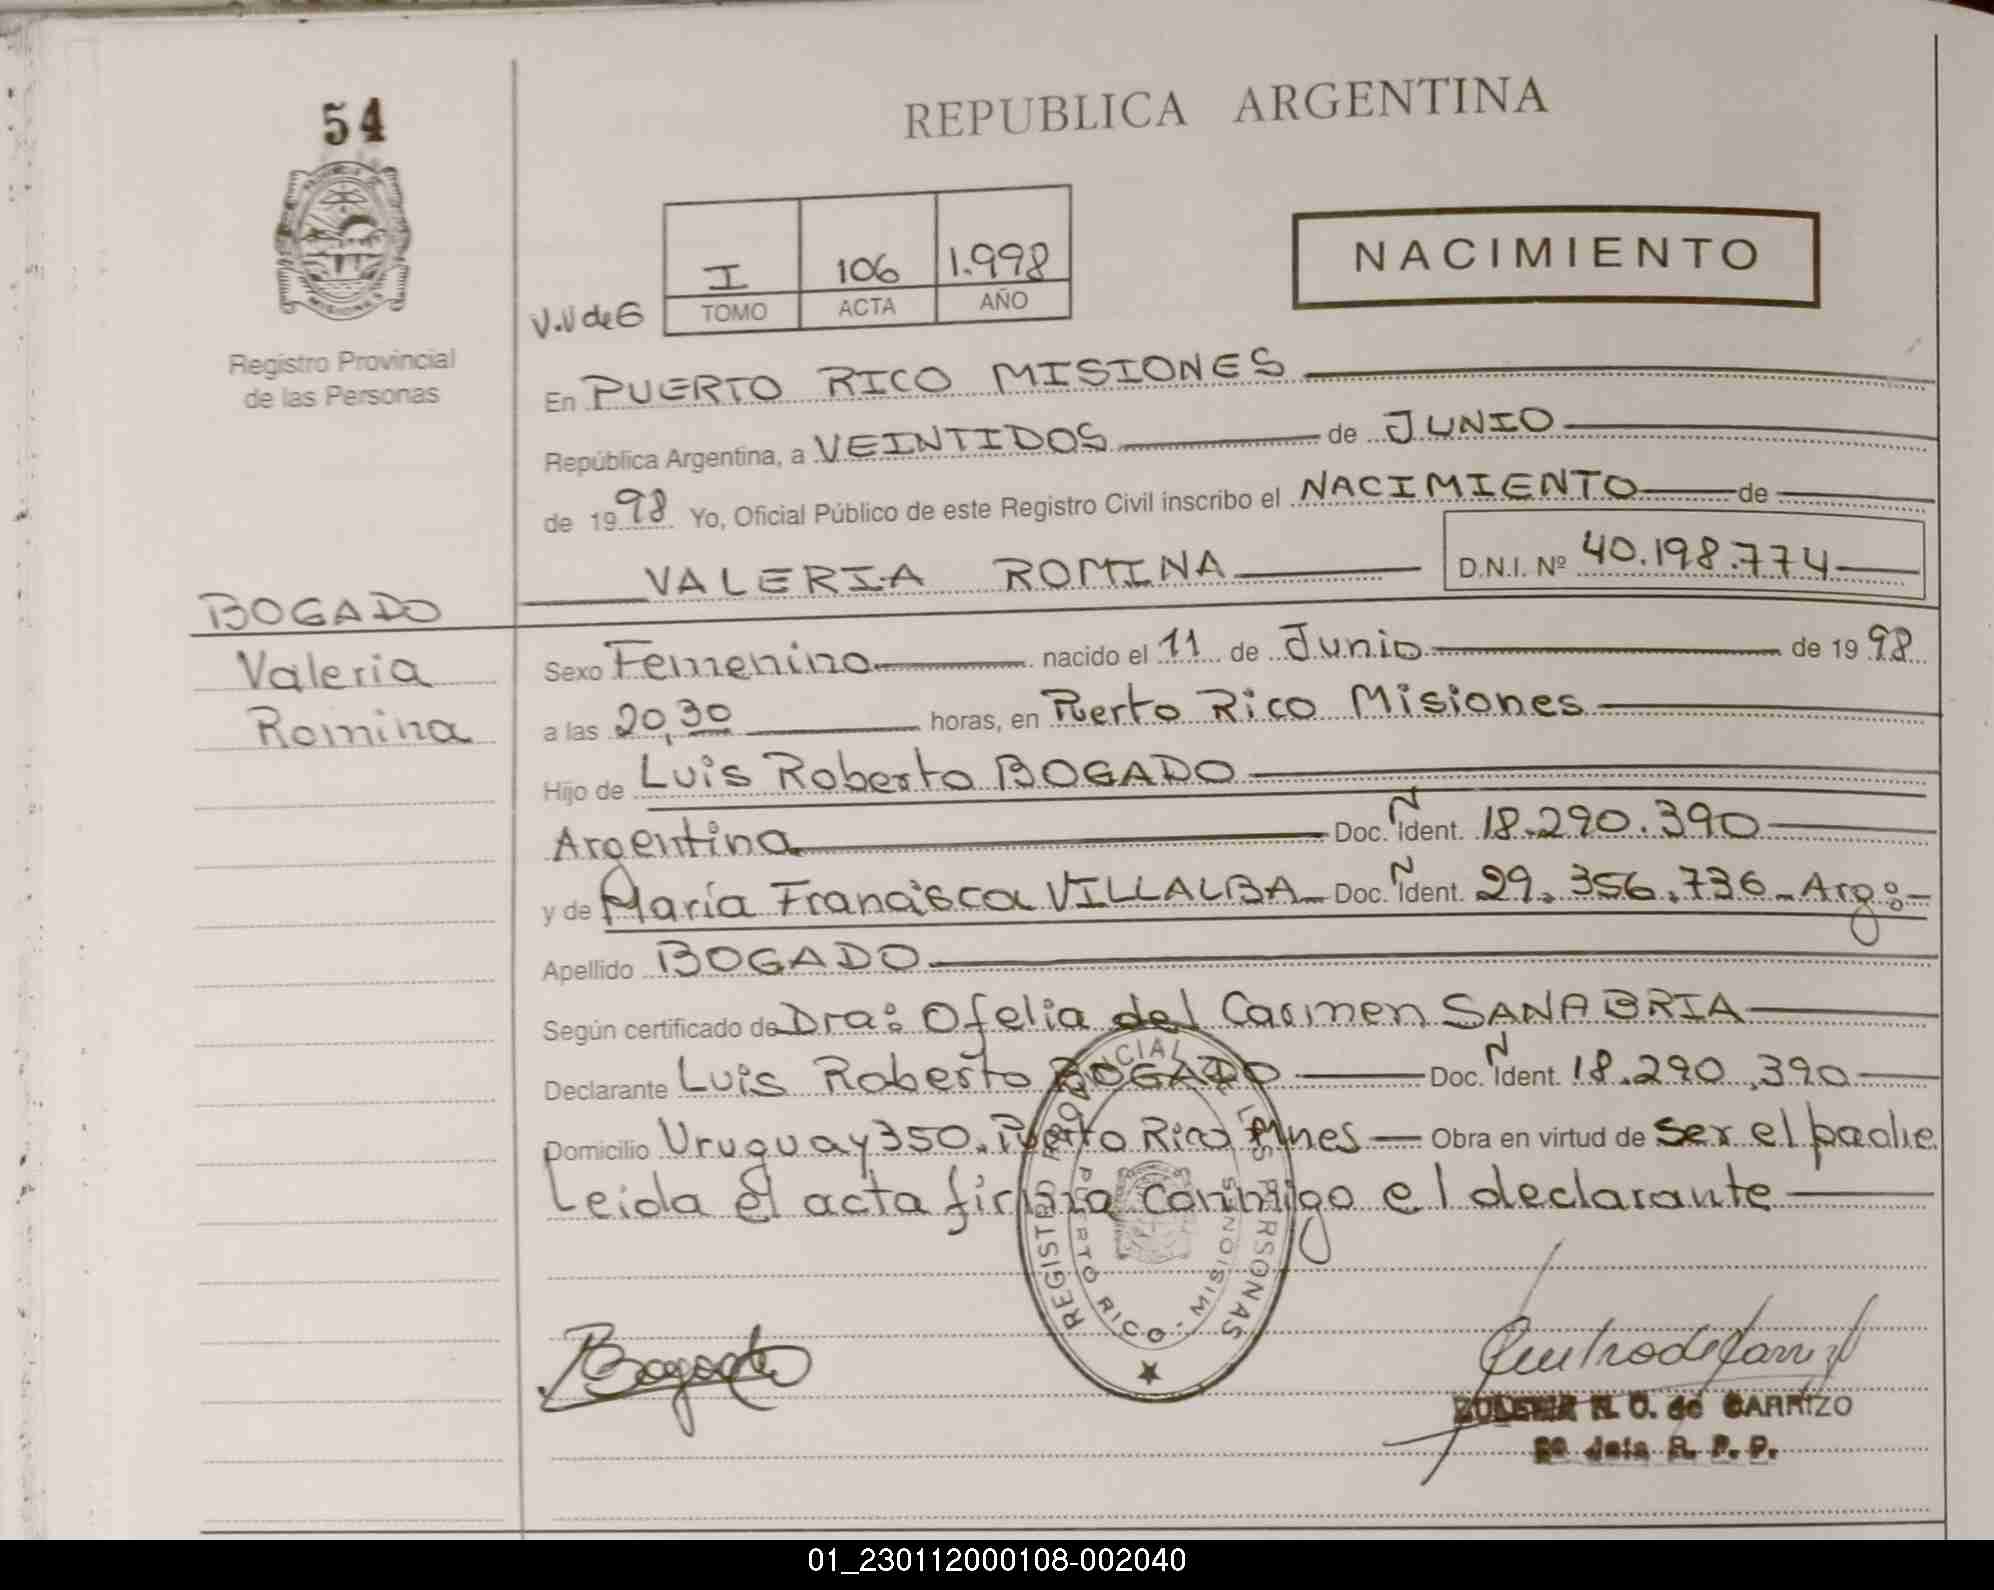 54
REPUBLICA ARGENTINA
I 106 1.998
TOMO ACTA AÑO
V.V de G
NACIMIENTO
MISIONES
Registro Provincial
de las Personas
En PUERTO RICO MISIONES
República Argentina, a VEINTIDOS de JUNIO
de 1998 Yo, Oficial Público de este Registro Civil inscribo el NACIMIENTO de
VALERIA ROMINA D.N.I. Nº 40.198.774
BOGADO
Valeria
Romina
Sexo Femenino nacido el 11 de Junio de 1998
a las 20,30 horas, en Puerto Rico Misiones
Hijo de Luis Roberto BOGADO
Argentina Doc. N Ident. 18.290.390
y de María Francisca VILLALBA Doc. N Ident. 29.356.736 - Arg:
Apellido BOGADO
Según certificado de Dra: Ofelia del Carmen SANABRIA
Declarante Luis Roberto BOGADO Doc. N Ident. 18.290.390
Domicilio Uruguay 350. Puerto Rico Mnes Obra en virtud de ser el padre
Leida el acta firma conmigo el declarante
REGISTRO PROVINCIAL DE LAS PERSONAS
PUERTO RICO - MISIONES
Bogado
R. O. de CARRIZO
Jefa R. P. P.
01_230112000108-002040